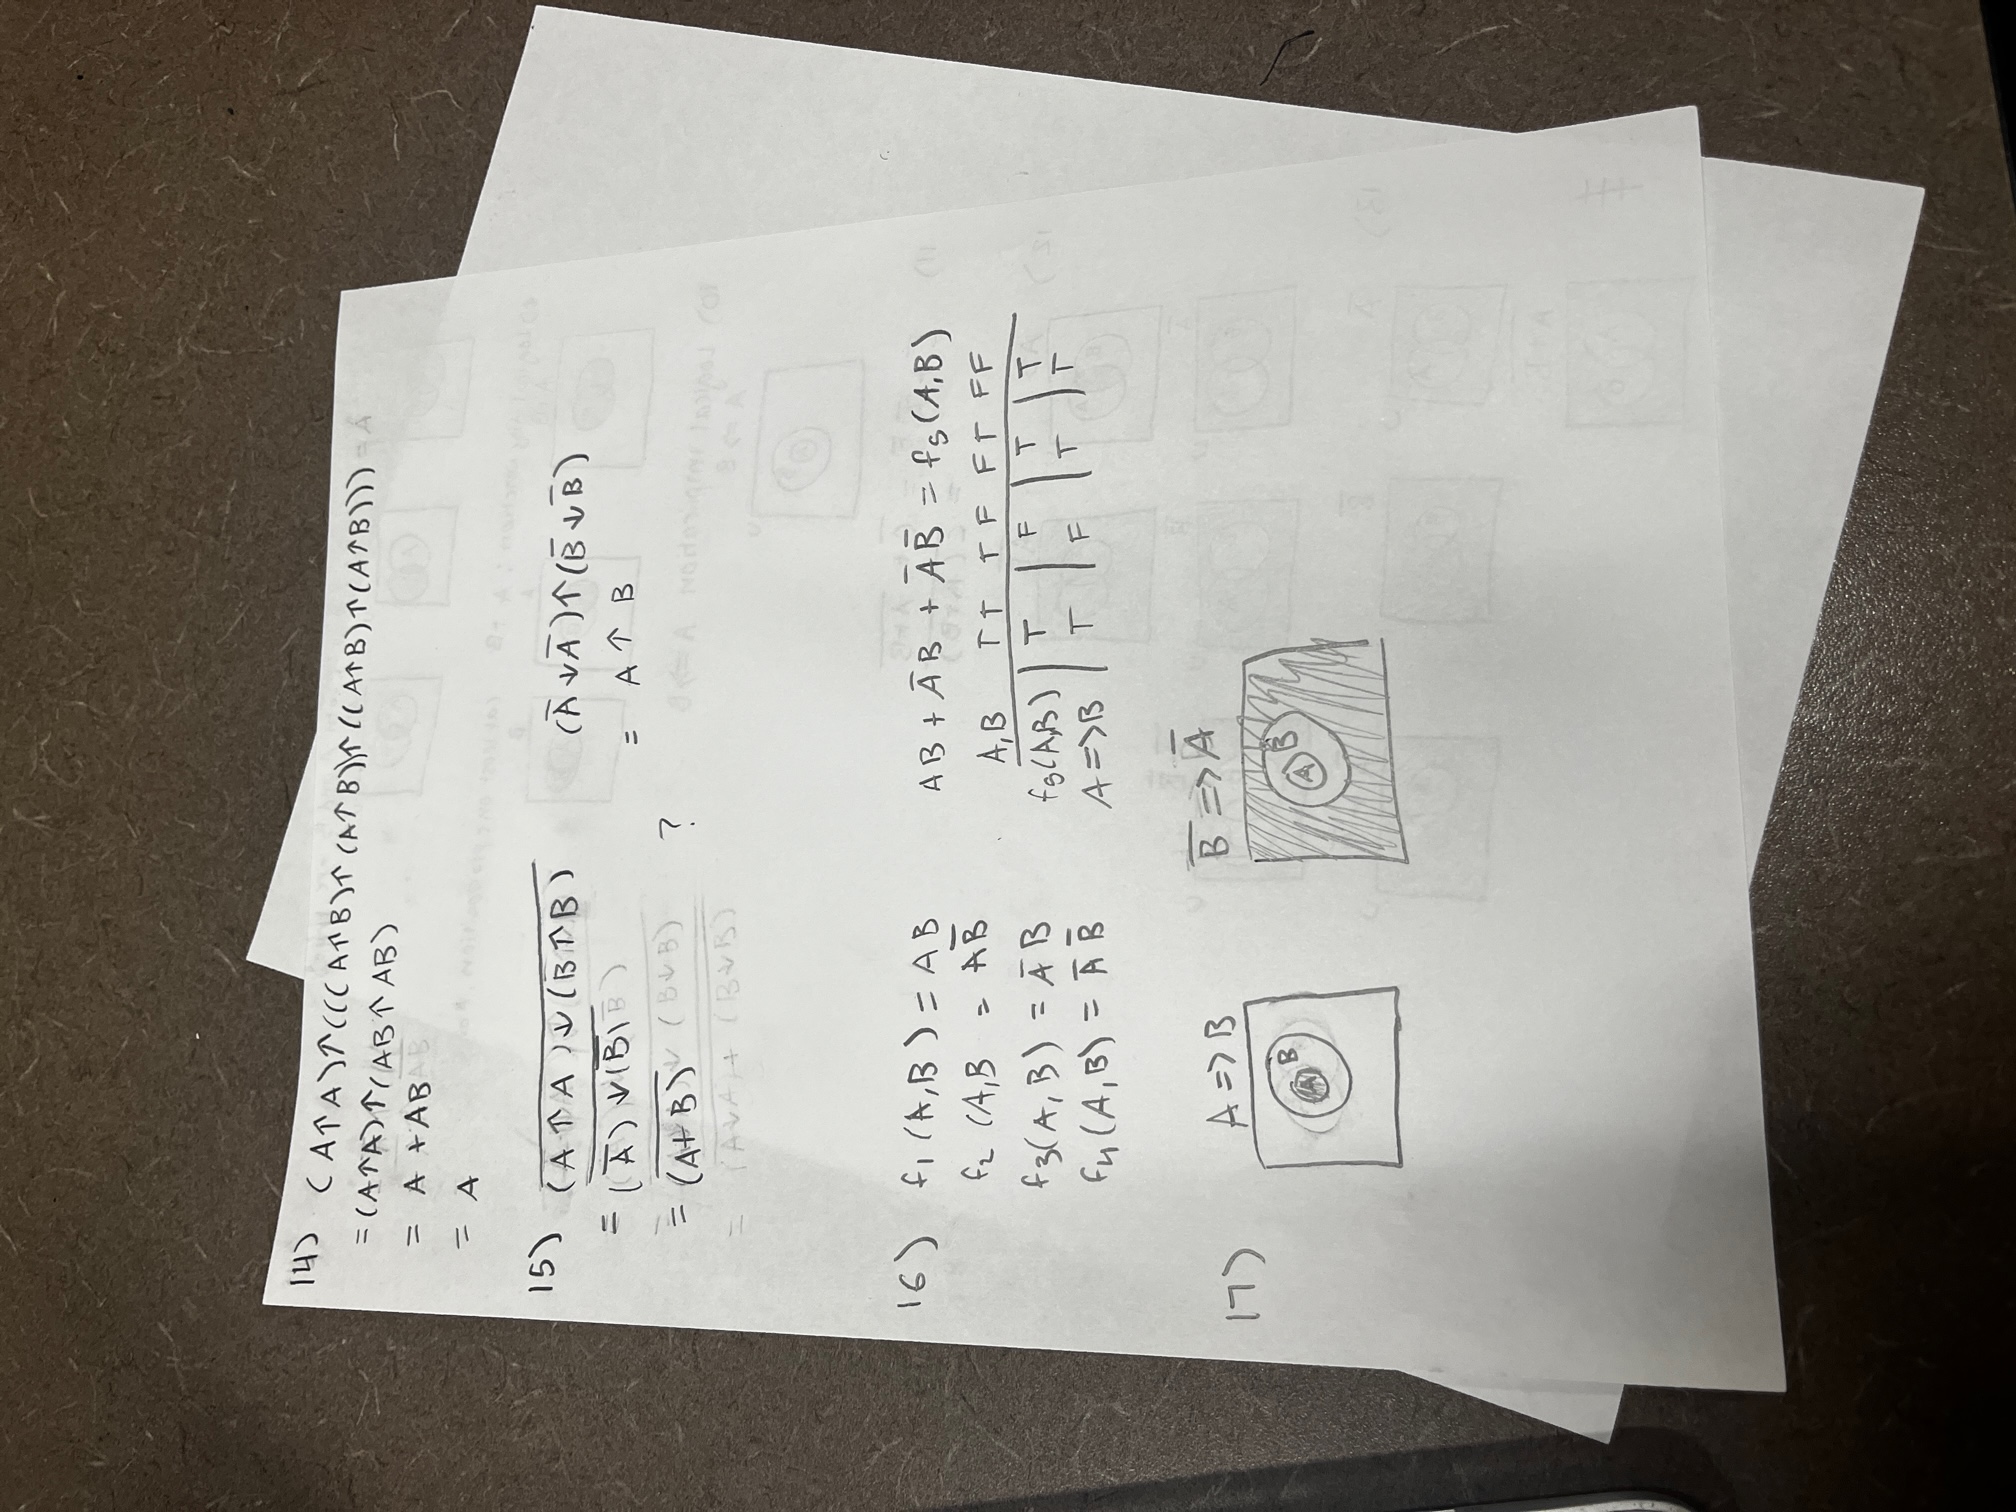 14) (A↑A)↑(((A↑B)↑(A↑B))↑((A↑B)↑(A↑B)))
= (A↑A)↑(AB↑AB)
= A + AB
= A
15) \overline{(A̅↑A)↓(B̅↑B)}
= \overline{(A̅)↓(B̅)}
= \overline{(A+B)} ?
(A̅↓A̅)↑(B̅↓B̅)
= A↑B
16) f₁(A,B) = AB
f₂(A,B = AB̅
f₃(A,B) = A̅B
f₄(A,B) = A̅B̅
AB + A̅B + A̅B̅ = f₅(A,B)
A,B TT TF FT FF
f₅(A,B) T F T T
A=>B T F T T
17) A=>B
A B
B̅=>A̅
A B